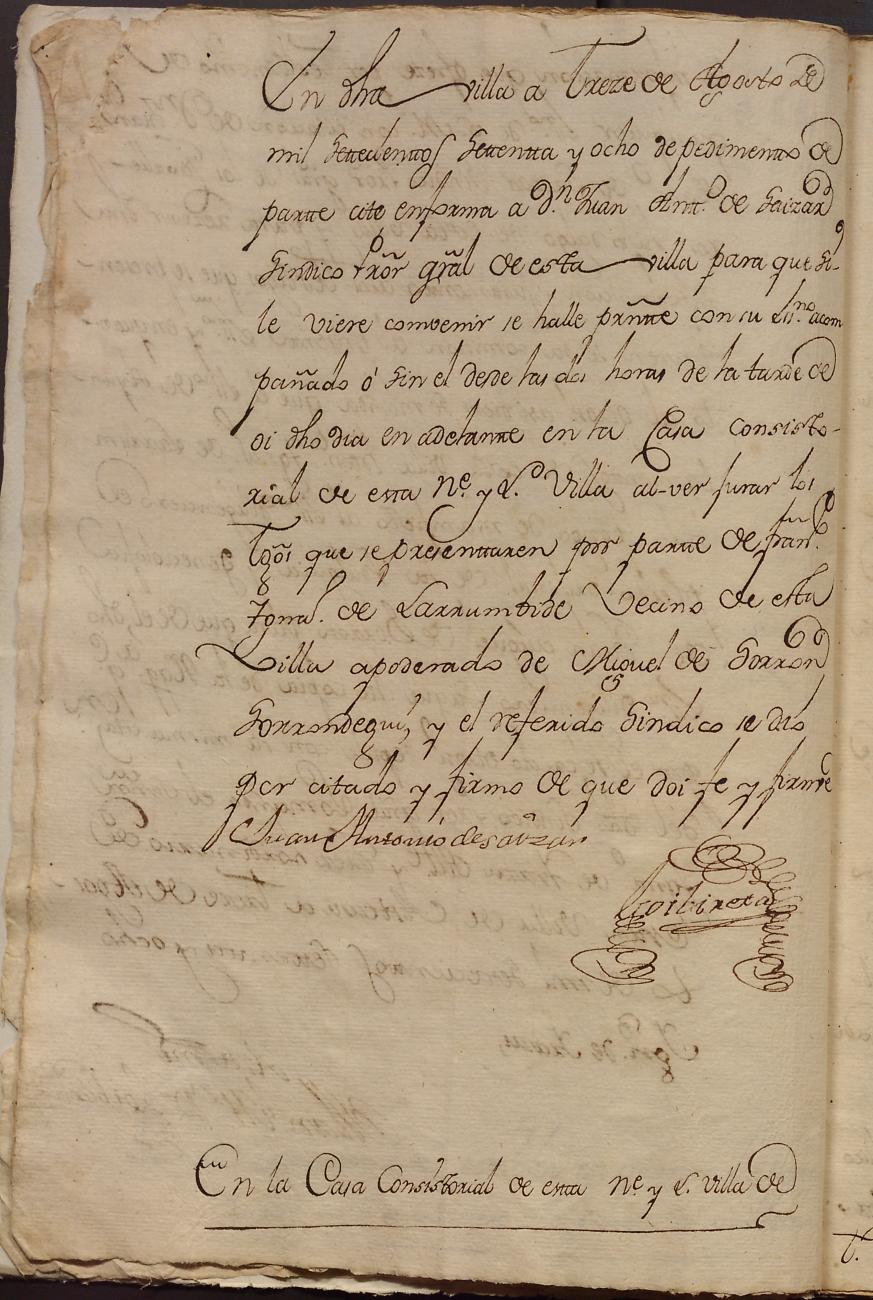 En dha villa a Treze de Agosto de
mil settecienttos settentta y ocho de pedimentto de
partte cite en forma a Dn. Juan Antto. de Saizar
Sindico Pror. gral de esta villa para que si
le viere comvenir se halle prñtte con su Essno. acom
pañado ó sin el desde las dos horas de la tarde de
oi dho dia en adelantte en la Casa Consisto-
rial de esta Ne. y L. Villa al-ver jurar los
Tgõs que se presenttaren por partte de Franco.
Ignao. de Larrumbide Vecino de esta
Villa apoderado de Miguel de Sorron
Sorrondegui, y el referido Sindico se dio
por citado y firmo de que doi fe y firme
Juan Antonio de Saizar
En la Casa Consistorial de esta Ne. y L. villa de